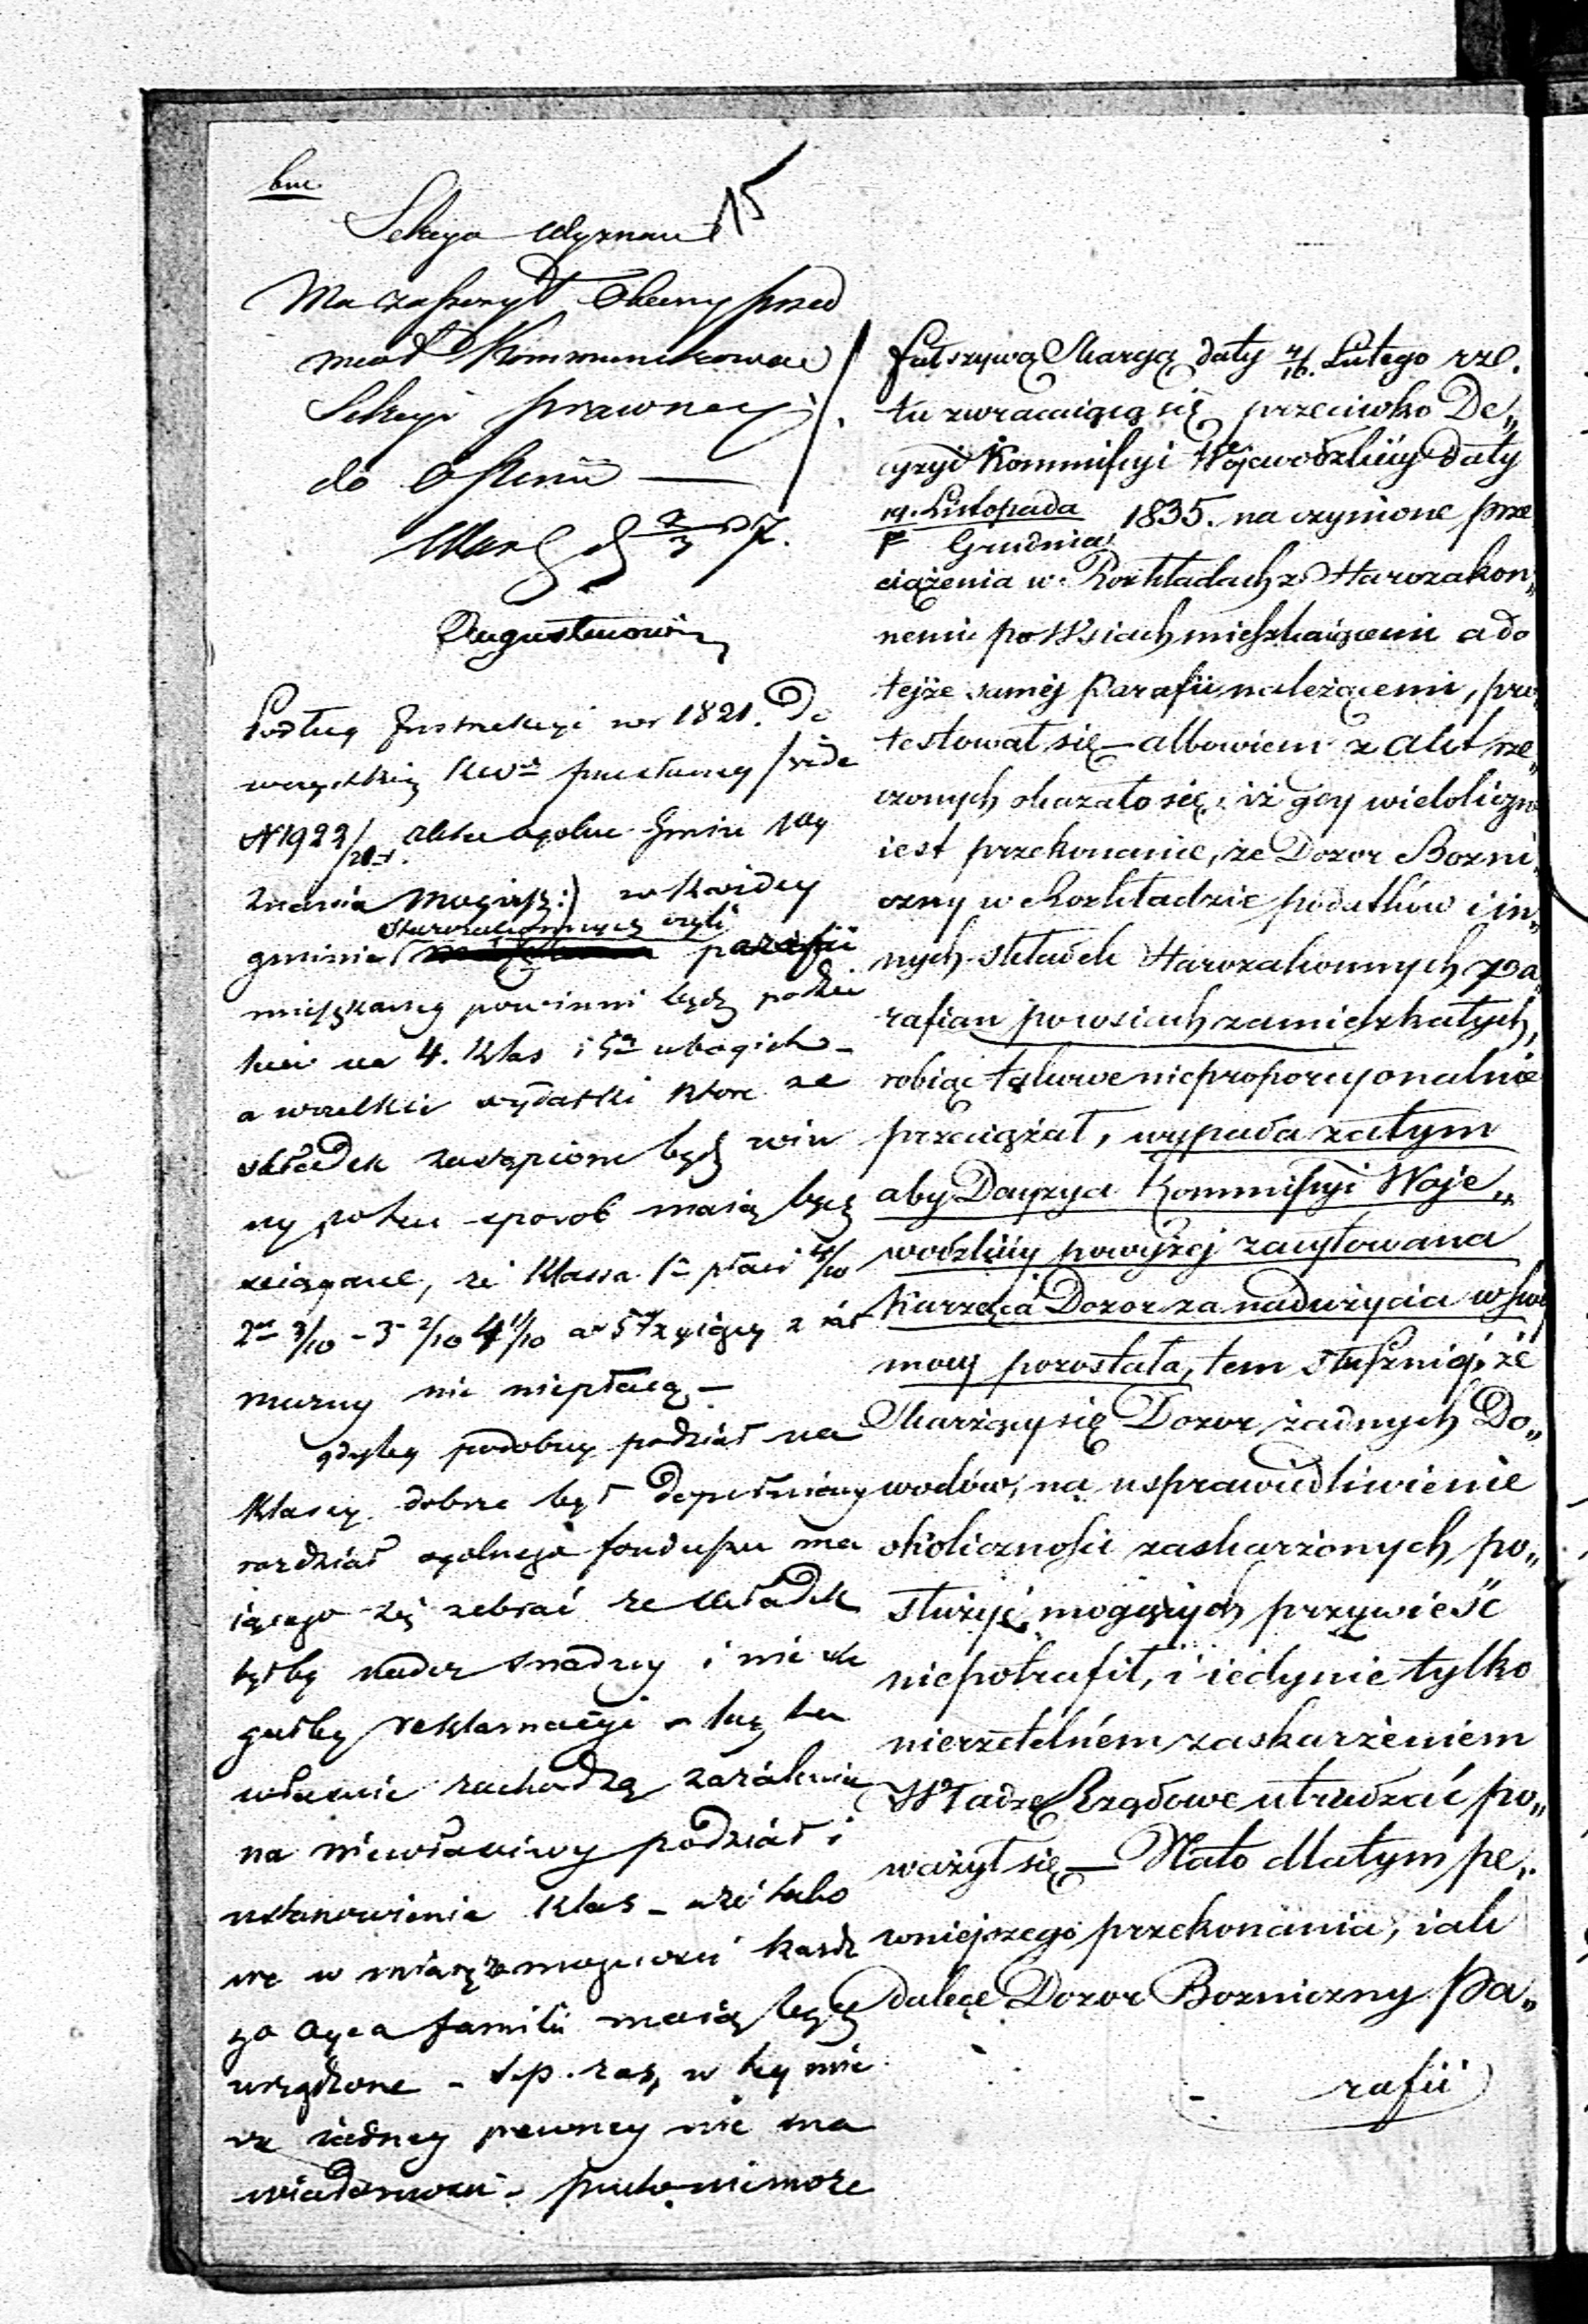 15
Sekcya Wyznań
Ma zaszczyt Obecny przed
miot Kommunikować
Sekcyi prawney
do Opinii —
Augustinowicz
Podług Instrukcyi w r 1821. De
wszystkich przesłaney /vide
N 1922/
znania Mojżesz:) w każdey
Starozakonnych czyli
gminie parafii
mieszkańcy powinni bydź podzie
leni na 4. Klas i 5ta ubogich —
a wszelkie wydatki które ze
składek zastąpione bydź win
ny, w ten sposób maią bydź
ściągane, że Klassa 1a płaci 4/10
2a 3/10 – 3a 2/10 4 1/10 a 5ta żyiący z iał
mużny nic niepłacą —
gdyby podobny podział na
Klassy dobrze był dopełniony
rozdział ogólnego funduszu ma
iącego się zebrać ze składek
byłby nader snadny i nie ule
gałby reklamacyi – lecz tu
właśnie zachodzą zażalenia
na niewłaściwy podział i
ustanowienie Klas – że tako
we w miarę zamożności każde
go Oyca familii maią bydź
urządzone – w tey mie
rze żadney pewney nie ma
wiadomości – nie może
fałszywą Skargą daty 4/16. Lutego rze.
tu zwracaiącą się przeciwko De„
cyzyi Kommissyi Wojewodzkiey daty
19. Listopada
1 Grudnia 1835. na czynione prze
ciążenia w Rozkładach z Starozakon„
nemi po Wsiach mieszkaiącemi a do
tejże samej Parafii należącemi, pro
testował się — albowiem z Akt rze„
czonych okazało się, iż gdy wieloliczne
iest przekonanie, że Dozor Bożni„
czny w Rozkładzie podatków i in„
nych składek Starozakonnych Pa„
rafian po wsiach zamieszkałych,
robiąc takowe nieproporcyonalnie
przeciążał, wypada zatym
aby Decyzya Kommissyi Woje„
wodzkiey powyżej zacytowana
Karząca Dozor za nadużycia w swey
mocy pozostała, tem słuszniej, że
Skarżący się Dozor żadnych Do„
wodów, na usprawiedliwienie
okoliczności zaskarżonych po„
służyć mogących przywieść
niepotrafił, i iedynie tylko
nierzetelném zaskarżeniem
Władze Rządowe utrudzać po„
ważył się — Nato dla tym pe„
wniejszego przekonania, iak
dalece Dozor Bożniczny Pa„
rafii